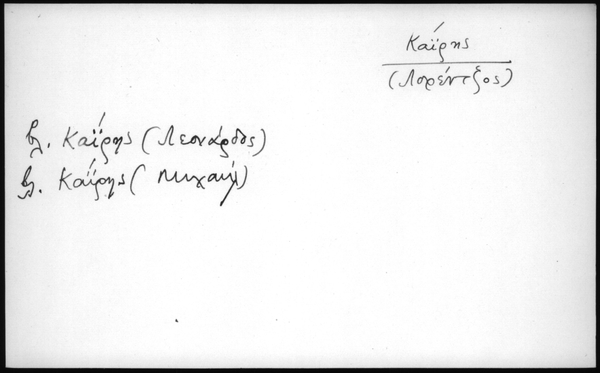 Καΐρης
(Λορέντζος)
βλ. Καΐρης (Λεονάρδος)
βλ. Καΐρης (Μιχαήλ)